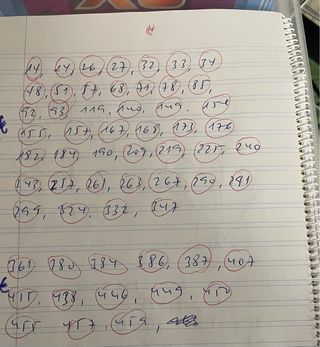 14, 14, 26, 27, 32, 33, 34
48, 51, 57, 68, 71, 78, 85,
92, 93, 119, 140, 149, 154
155, 157, 167, 168, 173, 176
182, 184, 190, 209, 219, 225, 240
243, 257, 261, 263, 267, 290, 291
299, 324, 332, 347
361, 380, 384, 386, 387, 407
415, 438, 446, 449, 450
455, 457, 459,